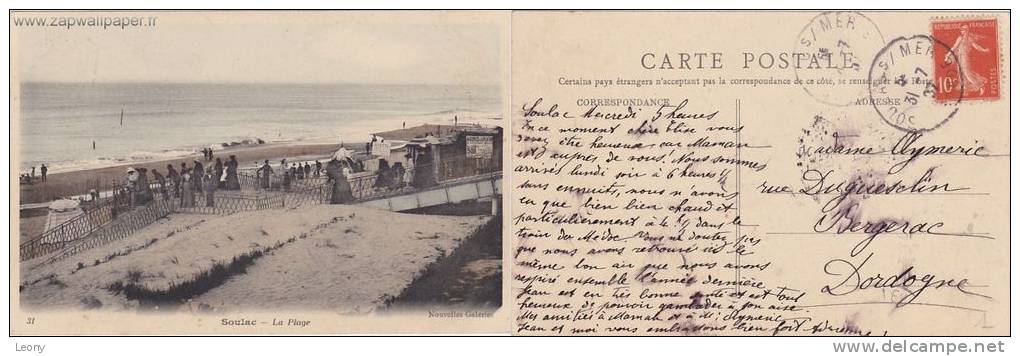 www.zapwallpaper.fr
31
Soulac — La Plage
Nouvelles Galeries
CARTE POSTALE
Certains pays étrangers n'acceptent pas la correspondance de ce côté, se renseigner
CORRESPONDANCE
ADRESSE
RÉPUBLIQUE FRANÇAISE
10
POSTES
S/MER
S/MER
31 -7
Soulac Mercredi 5 heures
En ce moment chère Élise vous
devez être heureuse car Maman
est auprès de vous. Nous sommes
arrivés lundi soir à 6 heures ½
sans ennuis, nous n'avons
eu que bien chaud et
particulièrement à le dans le
train du Médoc. Vous ne doutez pas
que nous avons retrouvé ici le
même bon air que nous avons
respiré ensemble l'année dernière
Jean est en très bonne santé et est tous
heureux de pouvoir gambader à son aise.
Mes amitiés à Maman et à Mr Aymeric
Jean et moi vous embrassons bien fort
Madame Aymeric
rue Duguesclin
Bergerac
Dordogne
www.delcampe.net